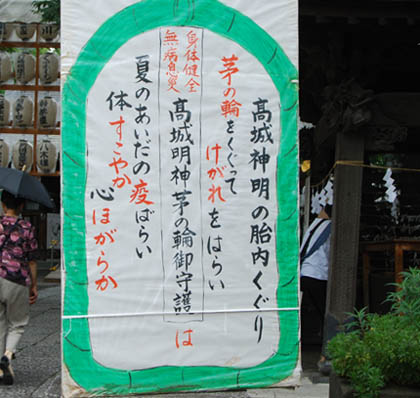 高城神明の胎内くぐり
茅の輪をくぐって
けがれをはらい
身体健全
無病息災
高城明神茅の輪御守護は
夏のあいだの疫ばらい
体すこやか
心ほがらか